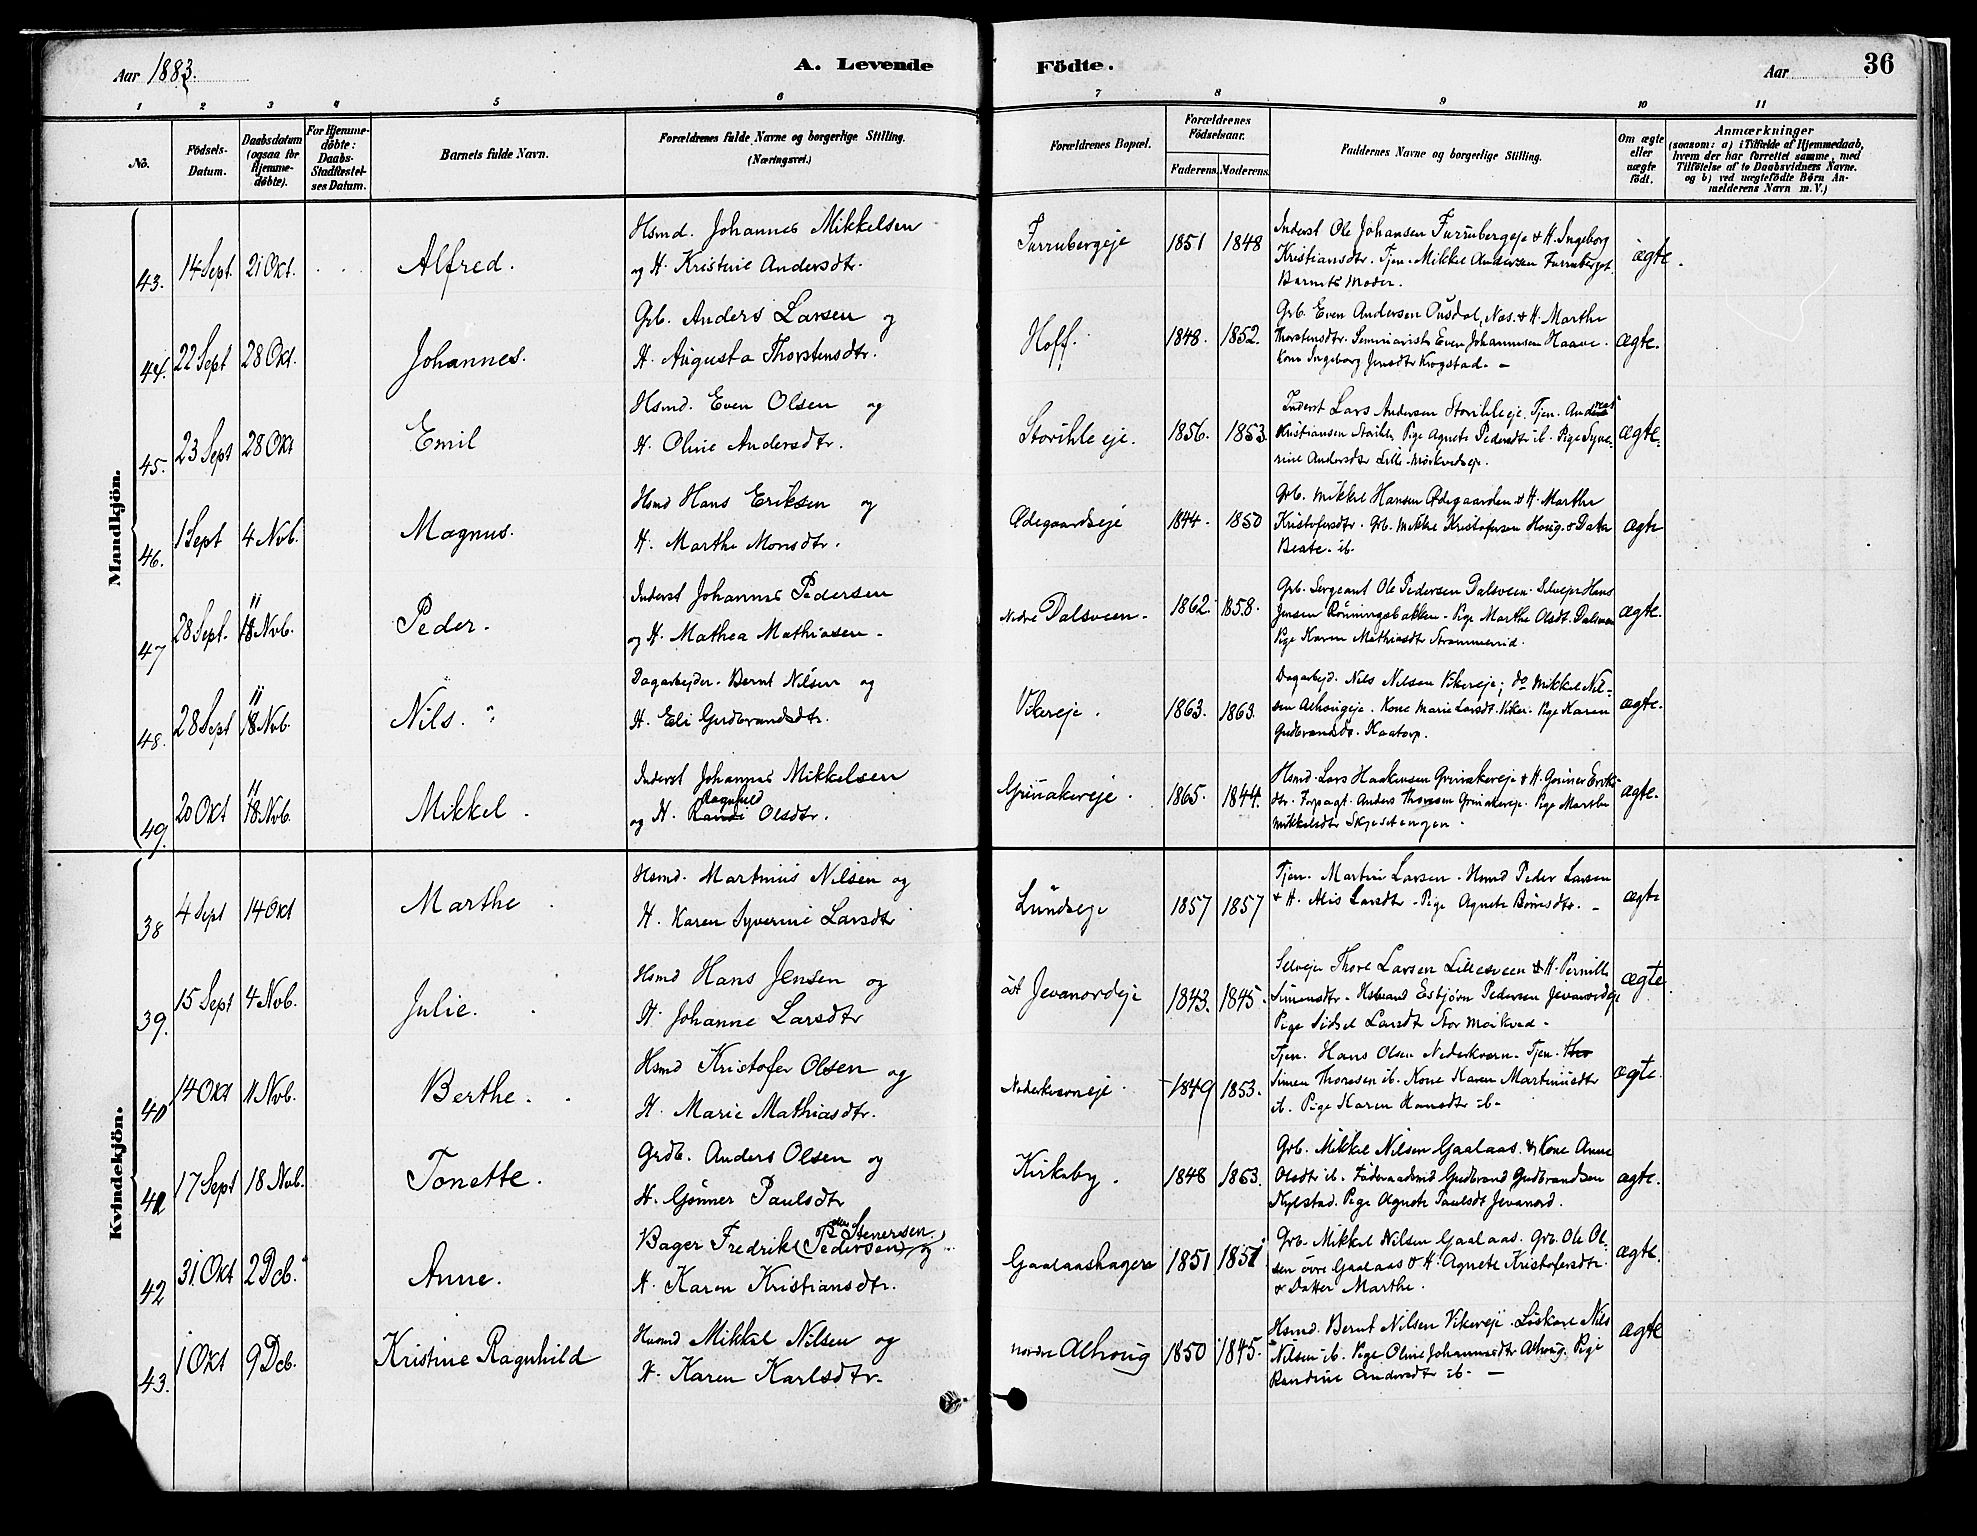 Aar 1883.
A. Levende
Födte.
Aar
36
1 2 3 4 5 6 7 8 9 10 11
No.
Födsels-
Datum.
Daabsdatum
(ogsaa for
Hjemme-
döbte).
For Hjemme-
döbte:
Daabs-
Stadfæstel-
ses Datum.
Barnets fulde Navn.
Forældrenes fulde Navne og borgerlige Stilling.
(Næringsvei.)
Forældrenes Bopæl.
Forældrenes
Födselsaar.
Faderens. Moderens.
Faddernes Navne og borgerlige Stilling.
Om ægte
eller
uægte
födt.
Anmærkninger
(saasom: a) i Tilfælde af Hjemmedaab,
hvem der har forrettet samme, med
Tilföielse af to Daabsvidners Navne.
og b) ved uægtefödte Börn An-
melderens Navn m. V.)
Mandkjön.
43. 14 Sept. 21 Okt. Alfred.
Hsmd. Johannes Mikkelsen
og H. Kristine Andersdtr.
Furrubergeje 1851 1848
Inderst Ole Johansen Furrubergeje & H. Ingeborg
Kristiansdtr. Tjen. Mikkel Andersen Furruberget.
Barnets Moder.
ægte.
44. 22 Sept 28 Okt. Johannes.
Grb. Anders Larsen og
H. Augusta Thorstensdtr.
Hoff. 1848. 1852.
Grb. Even Andersen Ousdal, Næs. & H. Marthe
Thorstensdtr. Seminarist Even Johannesen Haave.
Kone Ingeborg Jensdtr Krogstad. -
ægte.
45. 23 Sept 28 Okt Emil
Hsmd. Even Olsen og
H. Oline Andersdtr.
Storihle eje. 1856. 1853.
Inderst Lars Andersen Storihleeje, Tjen. Andreas
Kristiansen Storihle, Pige Agnete Pedersdtr ib. Pige Syve-
rine Andersdtr Lille-Mørkvedeje.
ægte.
46. 1 Sept 4 Nvb. Magnus.
Hsmd Hans Eriksen og
H. Marthe Monsdtr.
Ødegaardseje 1844. 1850
Grb. Mikkel Hansen Ødegaarden & H. Marthe
Kristofersdtr. Grb. Mikkel Kristofersen Houg. & Datter
Beate. ib.
ægte
47 28 Sept. 11 Nvb. Peder.
Inderst Johannes Pedersen
og H. Mathea Mathiasen.
Nedre Dalsveen. 1862. 1858.
Grb. Sergeant Ole Pedersen Dalsveen. Selvejer Hans
Jensen Rönningsbakken. Pige Marthe Olsdt. Dalsveen
Pige Karen Mathiasdtr Strammerud.
ægte.
48. 28 Sept 11 Nvb. Nils.
Dagarbejder. Bernt Nilsen og
H. Eli Gudbrandsdtr.
Vikereje. 1863. 1863.
Dagarbejd. Nils Nilsen Vikereje; do Mikkel Nil-
sen Alhougeje. Kone Marie Larsdt. Viker. Pige Karen
Gudbrandsd. Kaatorp.
ægte.
49. 20 Okt 11 Nvb. Mikkel.
Inderst Johannes Mikkelsen
og H. Randi Ragnhild Olsdtr.
Grinakereje. 1865. 1844.
Hsmd. Lars Haakensen Grinakereje & H. Goiner Eriks-
dtr. Forpagt. Anders Thoresen Grinakereje. Pige Marthe
Mikkelsdtr Skjeset engen.
ægte.
Kvindekjön.
38 4 Sept 14 Okt Marthe
Hsmd. Martinius Nilsen og
H. Karen Syverine Larsdtr
Lundseje 1857 1857
Tjen. Martin Larsen. Hsmd Peder Larsen
& H. Mis Larsdtr. Pige Agnete Börresdtr. -
ægte
39. 15 Sept 4 Nvb. Julie.
Hsmd Hans Jensen og
H. Johanne Larsdtr
öst Jevanordeje 1843. 1845.
Selvejer Thore Larsen Lillesveen & H. Pernille
Simensdtr. Husmand Esbjørn Pedersen Jevanordeje
Pige Sidsel Larsdtr Stor Mörkved.
ægte.
40 14 Okt 11 Nvb. Berthe.
Hsmd Kristofer Olsen og
H. Marie Mathiasdtr.
Nederkværneje. 1849 1853.
Tjen. Hans Olsen Nederkværn. Tjen. Tho
Simen Thoresen ib. Kone Karen Martinusdtr
ib. Pige Karen Hansdtr ib.
ægte.
41 17 Sept 18 Nvb. Tonette.
Grdb. Anders Olsen og
H. Gönner Paulsdtr
Kirkeby. 1848 1853.
Grb. Mikkel Nilsen Gaalaas. & Kone Anne
Olsdtr ib. Föderaadsmd Gudbrand Gudbrandsen
Kylstad. Pige Agnete Paulsdt Jevanord.
ægte.
42 31. Okt 2 Dcb. Anne.
Bager Fredrik Pedersen Stenersen og
H. Karen Kristiansdtr.
Gaalaashagen 1851 1851
Grb. Mikkel Nilsen Gaalaas. Grb. Ole Ol-
sen övre Gaalaas & H. Agnete Kristofersdtr.
& Datter Marthe.
ægte.
43. 1 Okt 9 Dcb. Kristine Ragnhild
Husmd Mikkel Nilsen og
H. Karen Karlsdtr.
nordre Alhoug 1850 1845.
Hsmd. Bernt Nilsen Vikereje. Löskarl Nils
Nilsen ib. Pige Oline Johannesdtr Alhoug. Pige
Randine Andersdtr ib. -
ægte